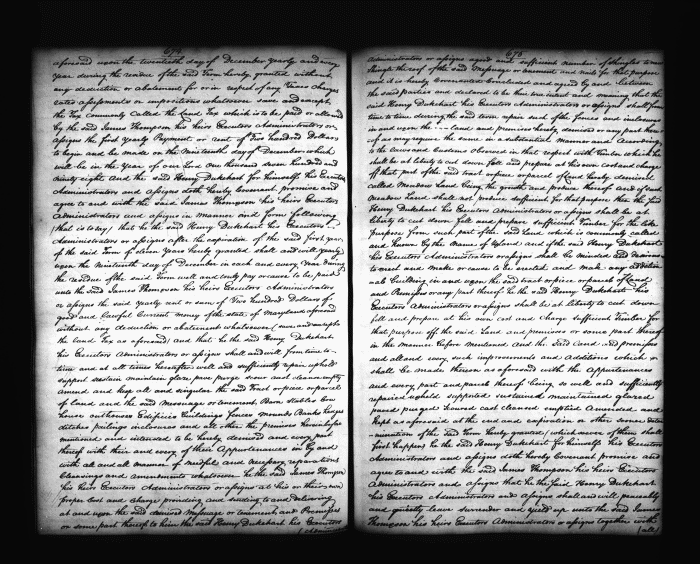 674
aforesaid upon the twentieth day of December yearly and every
year during the residue of the said Term hereby granted without
any deduction or abatement for or in respect of any Taxes charges
rates assessments or impositions whatsoever save and except
the Tax commonly Called the Land Tax which is to be paid or allowed
by the said James Thompson his heirs Executors Administrators or
assigns the first yearly Payment or rent of Two hundred Dollars
to begin and be made on the Nineteenth day of December which
will be in the Year of our Lord One thousand seven hundred and
ninety eight and the said Henry Dukehart for himself his Executors
Administrators and assigns doth hereby Covenant promise and
agree to and with the said James Thompson his heirs Executors
Administrators and assigns in manner and form following
(that is to say) that he the said Henry Dukehart his Executors
Administrators or assigns after the expiration of the said first year,
of the said Term of eleven Years hereby granted shall and will yearly
upon the Nineteenth day of December in each and every Year during
the residue of the said Term well and truly pay or cause to be paid
unto the said James Thompson his heirs Executors Administrators
or assigns the said yearly rent or sum of Two hundred Dollars of
good and Lawful Current money of the state of Maryland aforesaid
without any deduction or abatement whatsoever (save and except
the Land Tax as aforesaid) and that he the said Henry Dukehart
his Executors Administrators or assigns shall and will from time to
time and at all times hereafter well and sufficiently repair uphold
support sustain maintain glaze pave purge scour cast cleanse empty
amend and keep all and singular the said Tract or piece or parcel
of Land and the said Messuage or tenement Barn Stables Cow
house outhouses Edifices Buildings fences mounds Banks hedges
ditches pailings inclosures and all other the premises hereinbefore
mentioned and intended to be hereby demised and every part
thereof with their and every of their Appurtenances in by and
with all and all manner of needful and necessary reparations
Cleansings and amendments whatsoever he the said James Thompson
his heirs Executors Administrators or assigns at his or their own
proper Cost and charge providing and sending to and delivering
at and upon the said demised Messuage or tenement and Premises
or some part thereof to him the said Henry Dukehart his Executors
675
Administrators or assigns good and sufficient number of shingles to new
shingle the roof of the said Messuage or tenement and nails for that purpose
and it is hereby Covenanted Concluded and agreed by and between
the said parties and declared to be their true intent and meaning that the
said Henry Dukehart his Executors Administrators or assigns shall from
time to time during the said term repair such of the fences and inclosures
in and upon the Land and premises hereby demised or any part there
of as may require the same in a substantial Manner and According
to the Course and Customs observed in that respect with Timber which he
shall be at liberty to cut down fall and prepare at his own cost and charge
off that part of the said tract or piece or parcel of Land hereby demised
called Meadow Land being the growth and produce thereof and if said
Meadow Land shall not produce sufficient for that purpose then the said
Henry Dukehart his Executors Administrators or assigns shall be at
liberty to cut down fall and prepare sufficient Timber for the like
purpose from such part of the said Land which is commonly called
and known by the Name of Upland and if the said Henry Dukehart
his Executors Administrators or assigns shall be minded and desirous
to erect and make or cause to be erected and made any addition
nals Building in and upon the said tract or piece or parcel of Land
and Premises or any part thereof he the said Henry Dukehart his
Executors Administrators or assigns shall be at liberty to cut down
fell and prepare at his own cost and Charge sufficient Timber for
that purpose off the said Land and premises or some part thereof
in the Manner before Mentioned And the said Land and premises
and all and every such improvements and Additions which
shall be made thereon as aforesaid with the Appurtenances
and every part and parcel thereof being so well and sufficiently
repaired upheld supported sustained maintained glazed
paved purged scoured cast cleansed emptied Amended and
kept as aforesaid at the end and expiration or other sooner deter
mination of the said Term hereby granted (which ever of them shall
first happen) he the said Henry Dukehart for himself his Executors
Administrators and assigns doth hereby Covenant promise and
agree to and with the said James Thompson his heirs Executors
Administrators and assigns that he the said Henry Dukehart
his Executors Administrators and assigns shall and will peaceably
and quietly leave surrender and yield up unto the said James
Thompson his heirs Executors Administrators or assigns together with
(all)